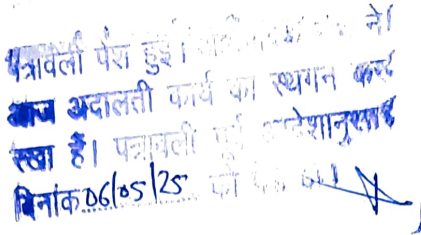 पत्रावली पेश हुई। ने।
आज अदालती कार्य का स्थगन कर
रखा है। पत्रावली पूर्व आदेशानुसार
दिनांक 06/05/25 को पेश हो।